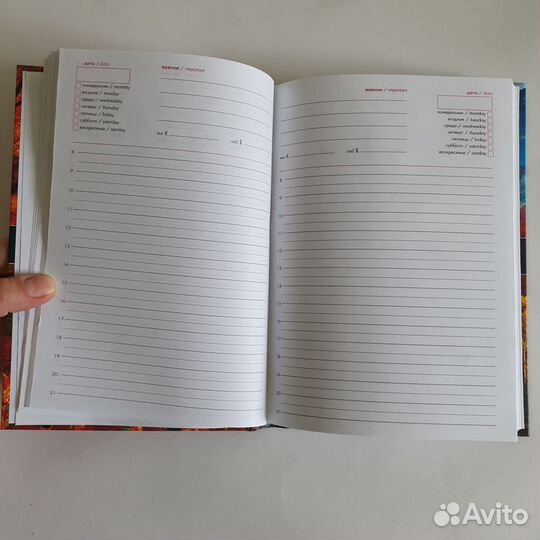 дата / date
важное / important
понедельник / monday
вторник / tuesday
среда / wednesday
четверг / thursday
пятница / friday
суббота / saturday
воскресение / sunday
eur €
usd $
8
9
10
11
12
13
14
15
16
17
18
19
20
21
важное / important
дата / date
понедельник / monday
вторник / tuesday
среда / wednesday
четверг / thursday
пятница / friday
суббота / saturday
воскресение / sunday
eur €
usd $
8
9
10
11
12
13
14
15
16
17
18
19
20
21
Avito